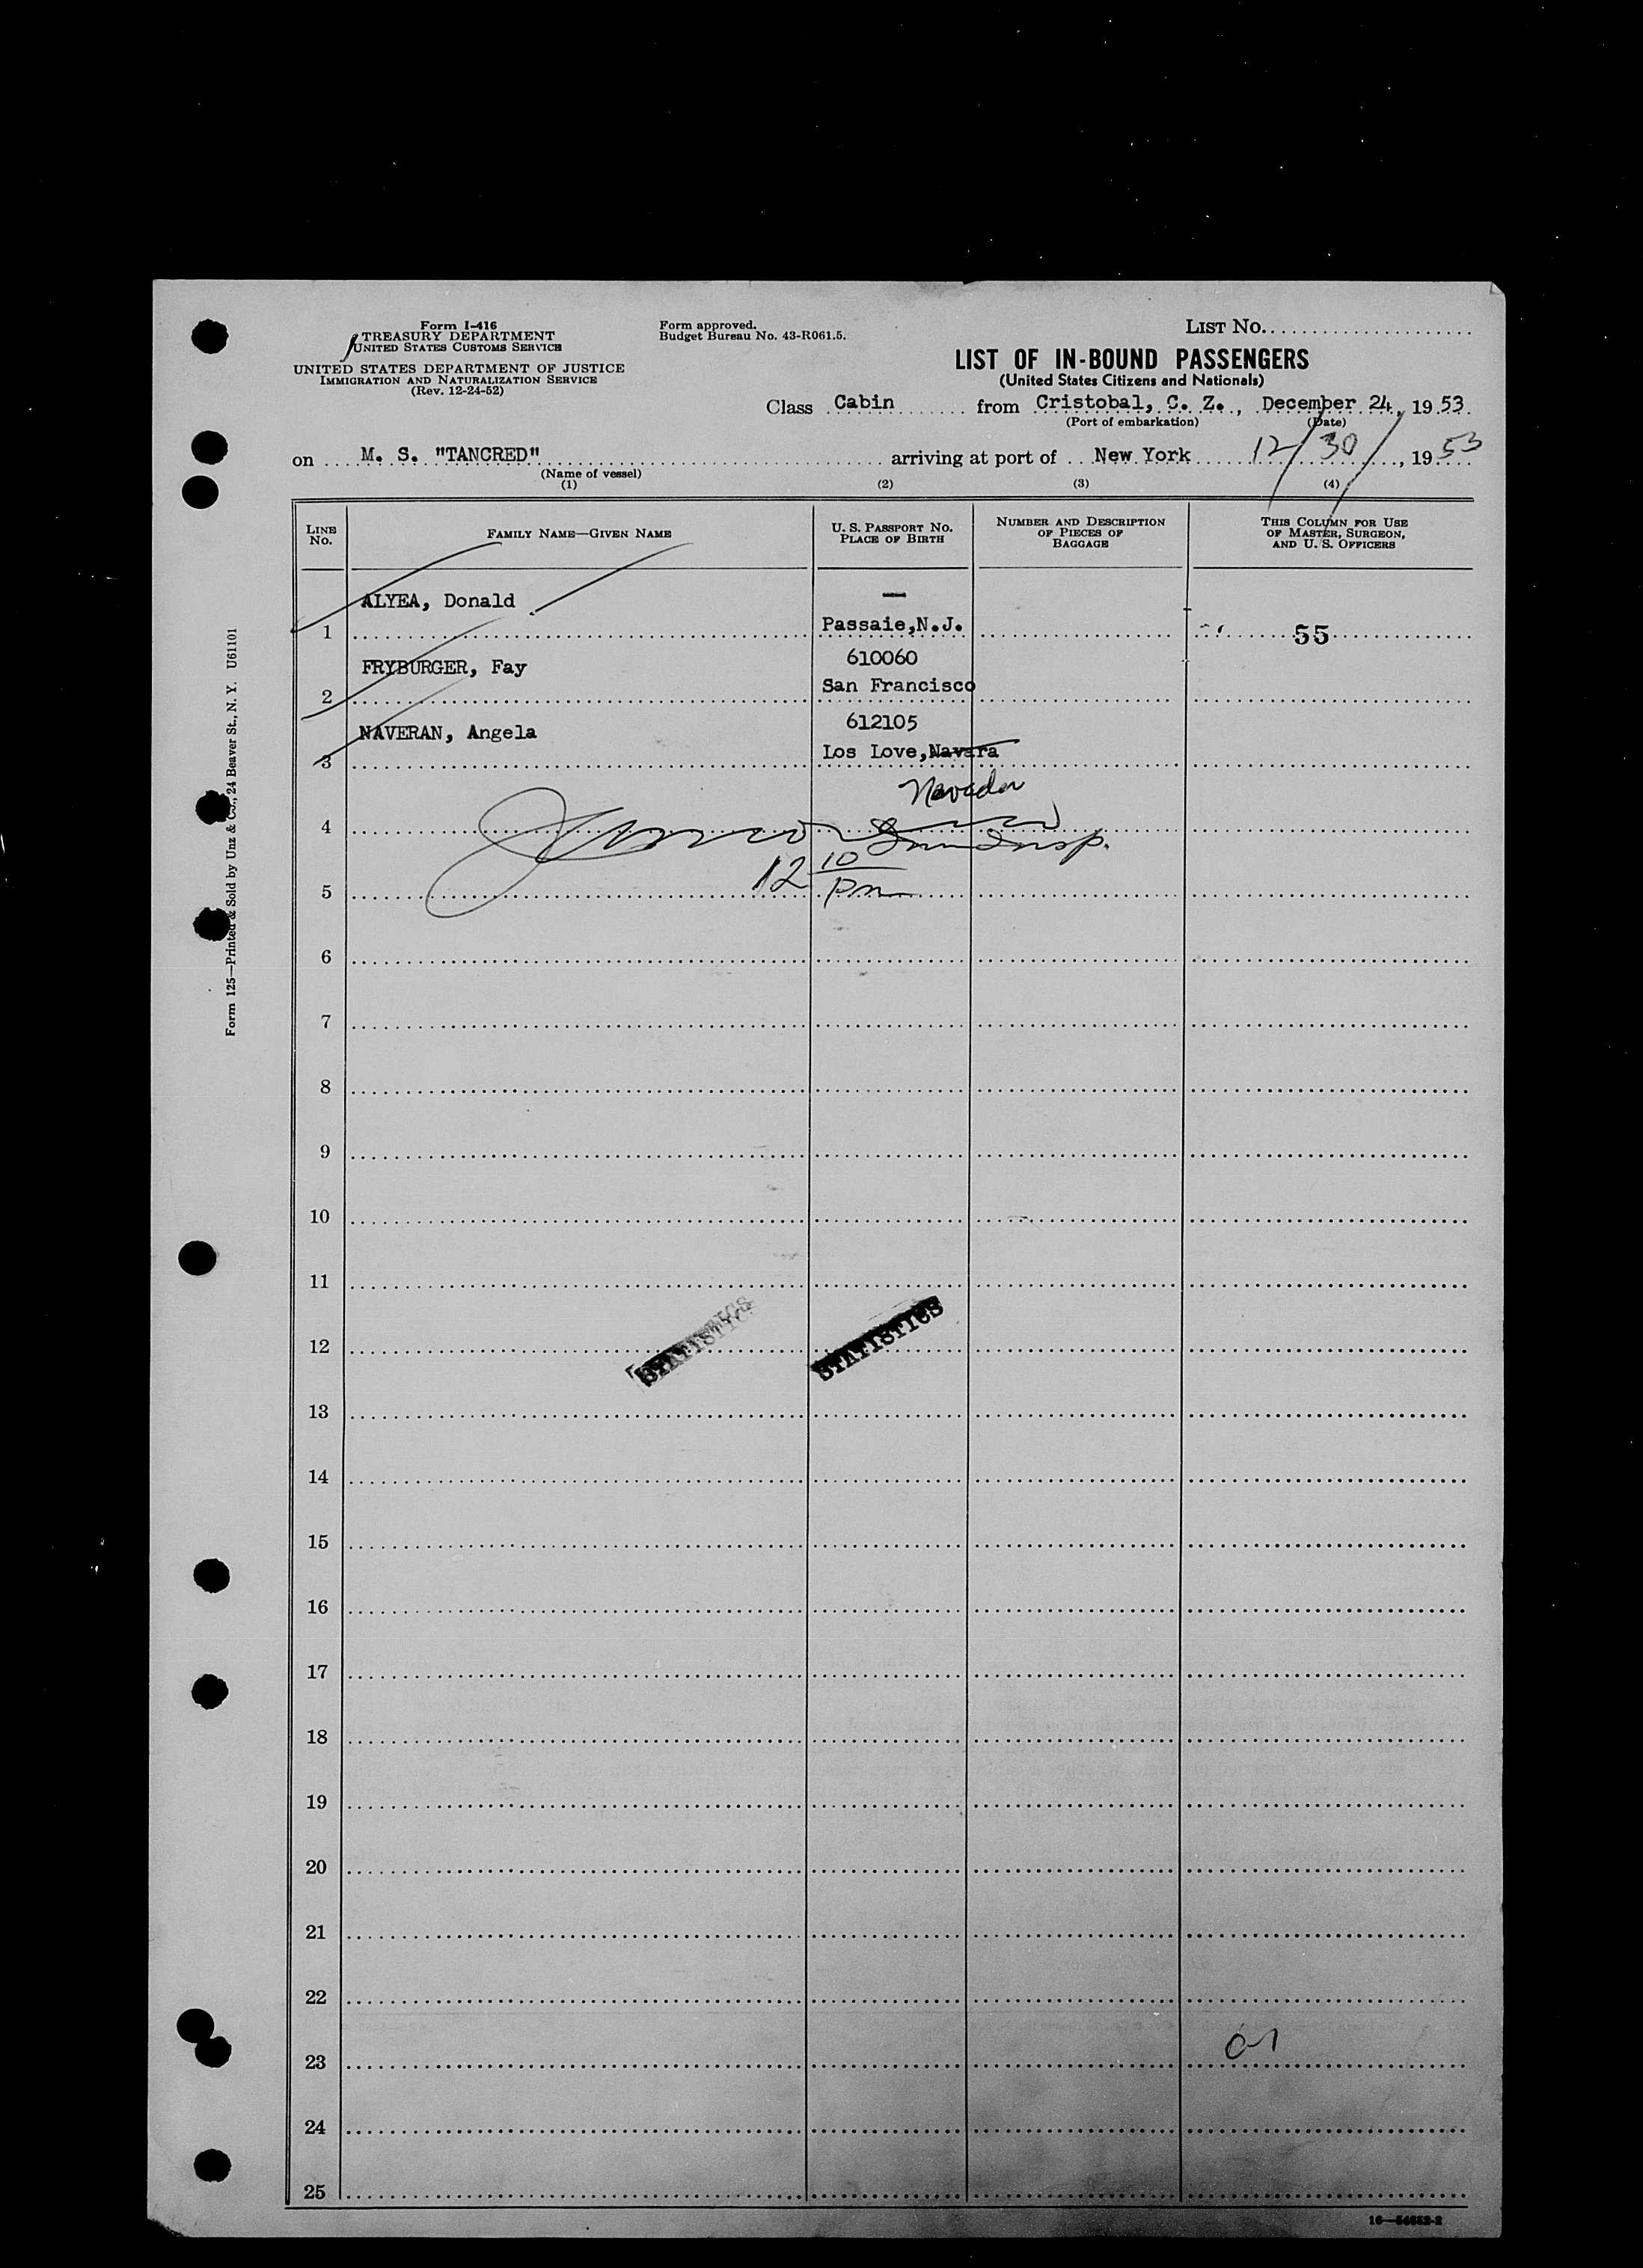 Form I-416
TREASURY DEPARTMENT
UNITED STATES CUSTOMS SERVICE
UNITED STATES DEPARTMENT OF JUSTICE
IMMIGRATION AND NATURALIZATION SERVICE
(Rev. 12-24-52)
Form approved.
Budget Bureau No. 43-R061.5.
LIST NO.
LIST OF IN-BOUND PASSENGERS
(United States Citizens and Nationals)
Class Cabin from Cristobal, C. Z., December 24, 1953
(Port of embarkation) (Date)
on M. S. "TANCRED" arriving at port of New York 12/30/, 1953
(Name of vessel)
(1) (2) (3) (4)
LINE NO.
FAMILY NAME—GIVEN NAME
U. S. PASSPORT NO.
PLACE OF BIRTH
NUMBER AND DESCRIPTION
OF PIECES OF
BAGGAGE
THIS COLUMN FOR USE
OF MASTER, SURGEON,
AND U. S. OFFICERS
ALYEA, Donald —
1 Passaie,N.J. 55
FRYBURGER, Fay 610060
2 San Francisco
NAVERAN, Angela 612105
3 Los Love,Navara
Nevada
4 Imm Insp.
12 10
5 Pm
6
7
8
9
10
11
12 STATISTICS STATISTICS
13
14
15
16
17
18
19
20
21
22
23
24
25
16—54652-2
Form 125—Printed & Sold by Unz & Co., 24 Beaver St., N. Y. U61101